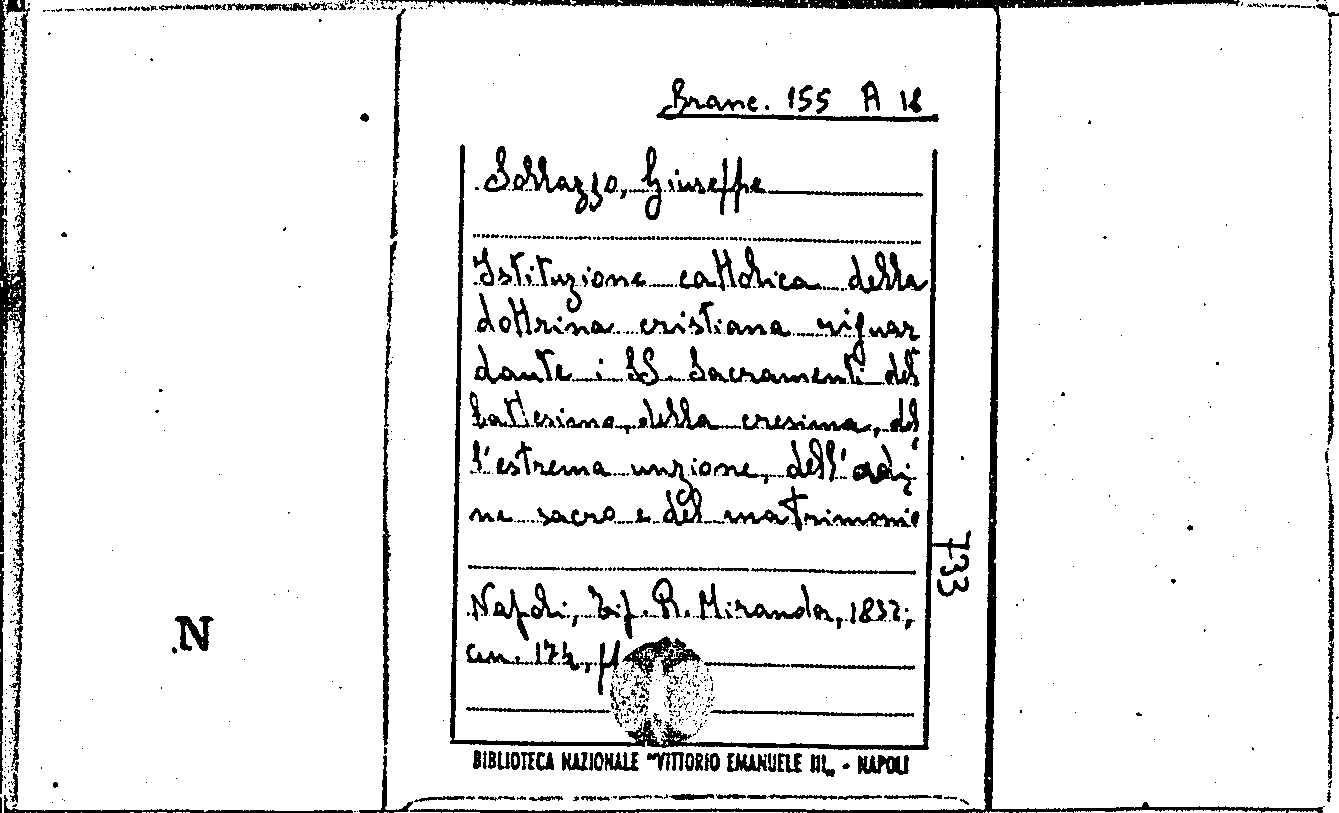 Branc. 155 A 18
Sollazzo, Giuseppe
Istituzione cattolica della
dottrina cristiana riguar
dante i SS. Sacramenti del
battesimo, della cresima, del
l'estrema unzione, dell'ordi
ne sacro e del matrimonio
733
Napoli, Tip. R. Miranda, 1832;
cm. 17½,
N
BIBLIOTECA NAZIONALE "VITTORIO EMANUELE III„ - NAPOLI